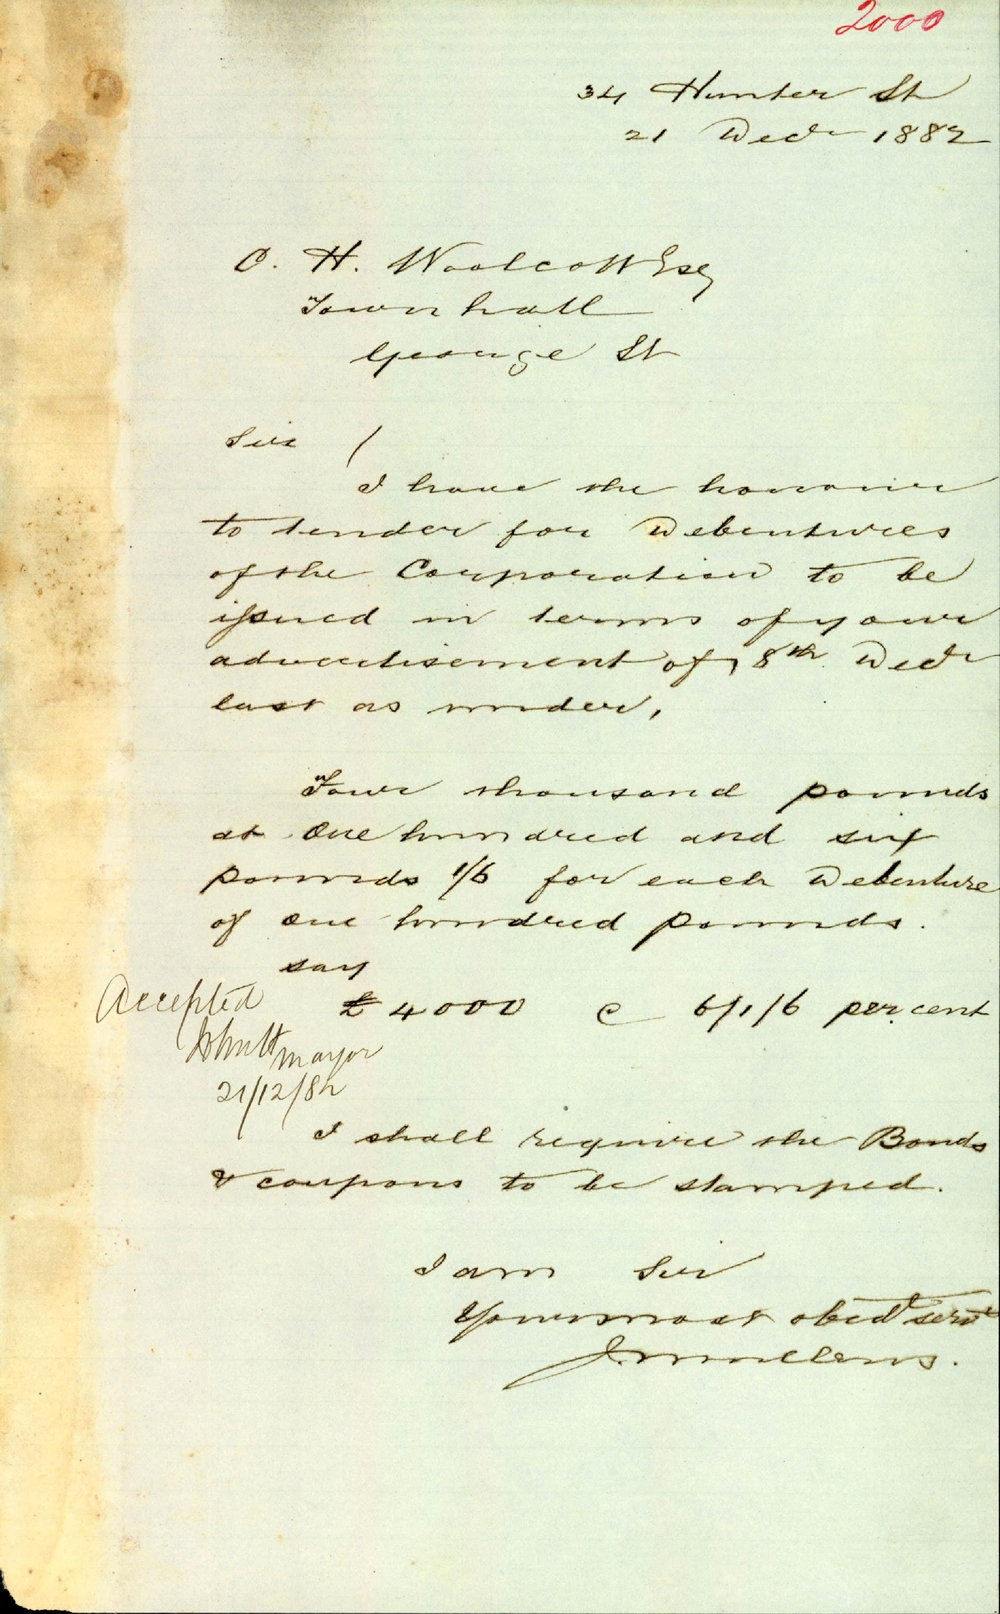 2000
34 Hunter St
21 Decr 1882
C. H. Woolcott Esq
Town hall
George St
Sir /
I have the honour
to tender for Debentures
of the Corporation to be
issued in terms of your
advertisement of 8th Decr
last as under,
Four thousand pounds
at One hundred and six
pounds 1/6 for each Debenture
of One hundred pounds.
say
£4000 @ 6/1/6 per cent
Accepted
mayor
21/12/82
I shall require the Bonds
& coupons to be stamped.
I am Sir
Your most obedt servt
J. Mullens.